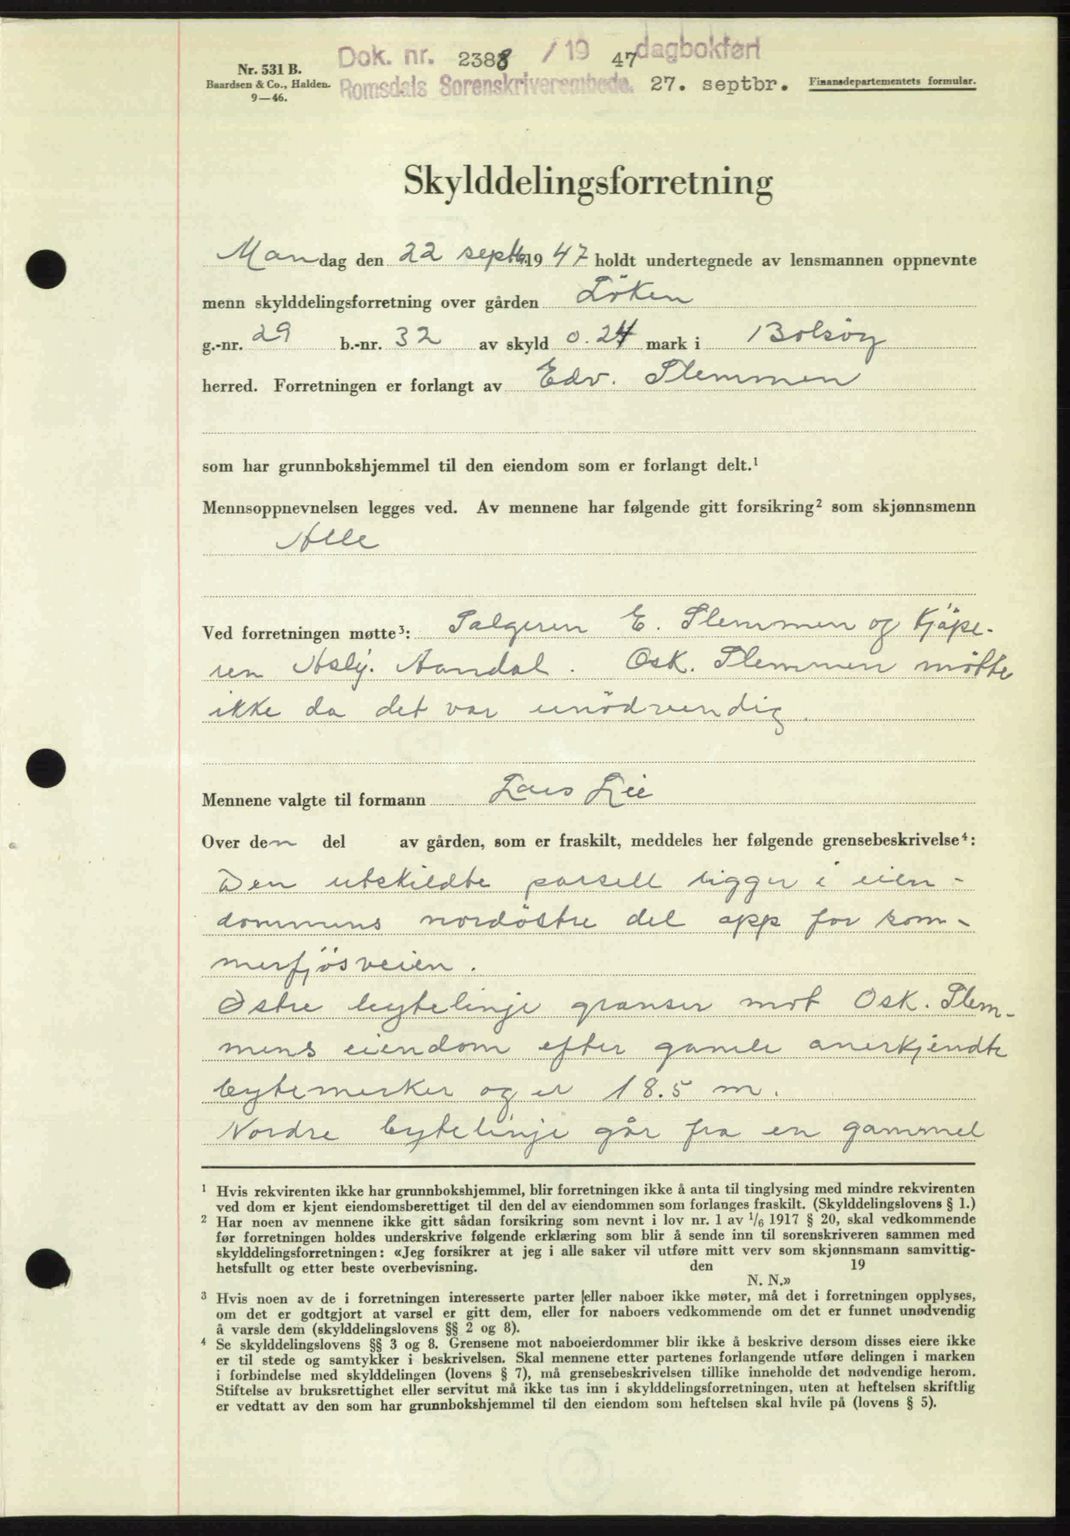 Dok. nr. 2388 / 19 47 dagbokført
Nr. 531 B.
Baardsen & Co., Halden.
9—46.
Romsdals Sorenskriverembede. 27. septbr.
Finansdepartementets formular.
Skylddelingsforretning
Mandag den 22 septb 1947 holdt undertegnede av lensmannen oppnevnte
menn skylddelingsforretning over gården Löken
g.-nr. 29 b.-nr. 32 av skyld 0.24 mark i Bolsöy
herred. Forretningen er forlangt av Edv. Flemmen
som har grunnbokshjemmel til den eiendom som er forlangt delt.¹
Mennsoppnevnelsen legges ved. Av mennene har følgende gitt forsikring² som skjønnsmenn
Alle
Ved forretningen møtte³: Selgeren E. Flemmen og kjöpe-
ren Aslj. Aandal. Osk. Flemmen mötte
ikke da det var unödvendig.
Mennene valgte til formann Lars Lie
Over den del av gården, som er fraskilt, meddeles her følgende grensebeskrivelse⁴:
Den utskildte parsell ligger i eien-
dommens nordöstre del opp for kom-
merfjösveien.
Östre bytelinje grenser mot Osk. Flem-
mens eiendom efter gamle anerkjendte
bytemerker og er 18.5 m.
Nordre bytelinje går fra en gammel
¹ Hvis rekvirenten ikke har grunnbokshjemmel, blir forretningen ikke å anta til tinglysing med mindre rekvirenten
ved dom er kjent eiendomsberettiget til den del av eiendommen som forlanges fraskilt. (Skylddelingslovens § 1.)
² Har noen av mennene ikke gitt sådan forsikring som nevnt i lov nr. 1 av ¹/₆ 1917 § 20, skal vedkommende
før forretningen holdes underskrive følgende erklæring som blir å sende inn til sorenskriveren sammen med
skylddelingsforretningen: «Jeg forsikrer at jeg i alle saker vil utføre mitt verv som skjønnsmann samvittig-
hetsfullt og etter beste overbevisning. den 19
N. N.»
³ Hvis noen av de i forretningen interesserte parter eller naboer ikke møter, må det i forretningen opplyses,
om det er godtgjort at varsel er gitt dem, eller for naboers vedkommende om det er funnet unødvendig
å varsle dem (skylddelingslovens §§ 2 og 8).
⁴ Se skylddelingslovens §§ 3 og 8. Grensene mot naboeierdommer blir ikke å beskrive dersom disses eiere ikke
er til stede og samtykker i beskrivelsen. Skal mennene etter partenes forlangende utføre delingen i marken
i forbindelse med skylddelingen (lovens § 7), må grensebeskrivelsen tillike inneholde det nødvendige herom.
Stiftelse av bruksrettighet eller servitut må ikke tas inn i skylddelingsforretningen, uten at heftelsen skriftlig
er vedtatt av den som har grunnbokshjemmel til den eiendom som heftelsen skal hvile på (lovens § 5).